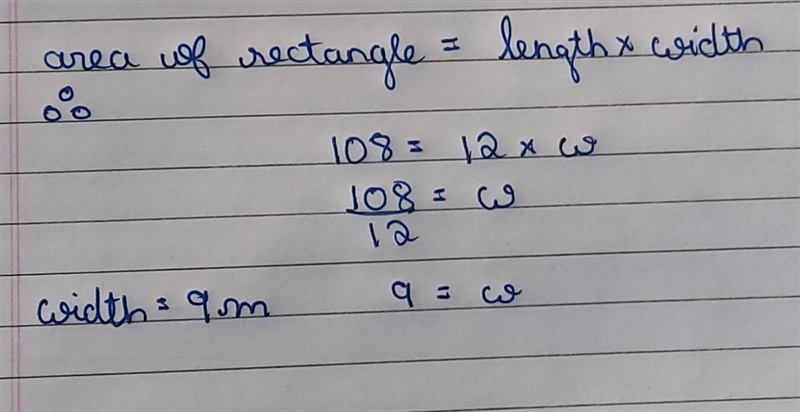 area of rectangle = length x width
∴
108 = 12 x w
108/12 = w
width = 9m 9 = w